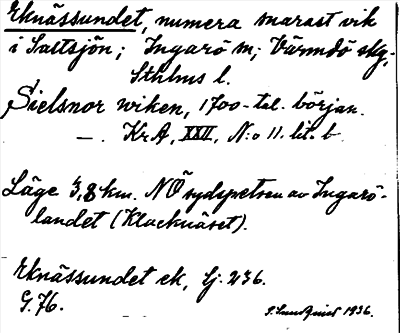 Eknässundet, numera smarast vik
i Saltsjön; Ingarö sn; Värmdö sklg;
Sthlms l.
Sielsnor wiken, 1700-tal. början.
—. Kr.A, XXII, N:o 11. lit. b
Läge 3,8 km. NÖ sydspetsen av Ingarö-
landet (Klacknäset).
Eknässundet ek, Gj. 236.
G. 76.
1936.